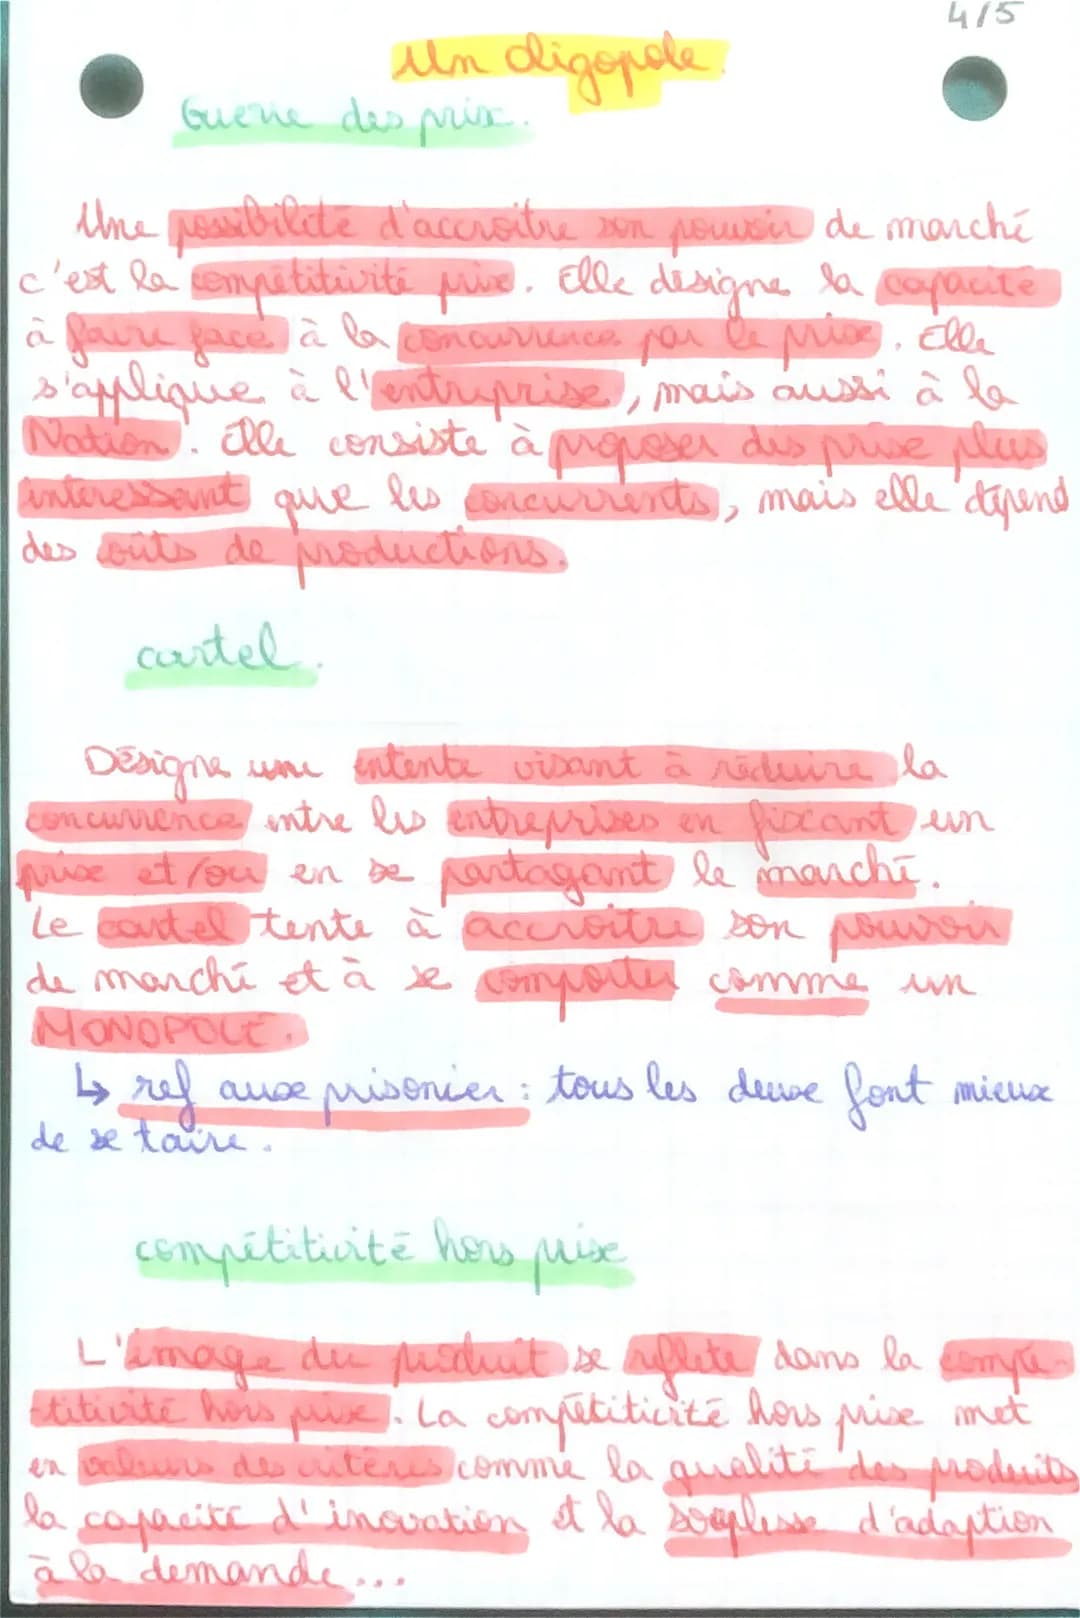 4/5
Un oligopole.
Guerre des prix.
Une possibilité d'accroître son pouvoir de marché
c'est la compétitivité prix. Elle désigne la capacité
à faire face à la concurrence par le prix. Elle
s'applique à l'entreprise, mais aussi à la
Nation. Elle consiste à proposer des prix plus
interessant que les concurrents, mais elle dépend
des coûts de productions.
cartel.
Désigne une entente visant à réduire la
concurrence entre les entreprises en fixant un
prix et/ou en se partagant le marché.
Le cartel tente à accroître son pouvoir
de marché et à se comporter comme un
MONOPOLE.
↳ ref aux prisonier : tous les deux font mieux
de se taire.
compétitivité hors prix
L'image du produit se reflète dans la compé-
-titivité hors prix. La compétitivité hors prix met
en valeurs des critères comme la qualité des produits
la capacité d'inovation et la souplesse d'adaption
à la demande...